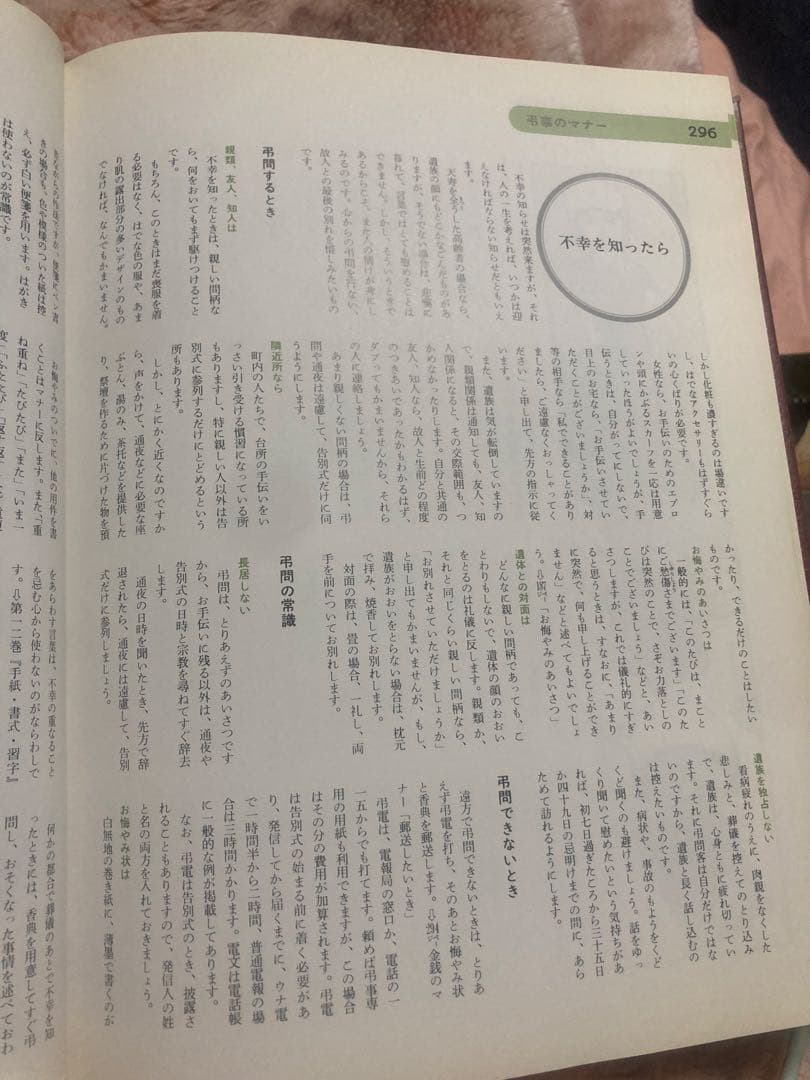 弔事のマナー
296
不幸を知ったら
不幸の知らせは突然来ますが、それ
は、人の一生を考えれば、いつかは迎
えなければならない知らせだともいえ
ます。
天寿を全うした高齢者の場合なら、
遺族の顔にもどこかなごんだものがあ
りますが、そうでない場合は、悲嘆に
暮れて、言葉ではとても慰めることは
できません。しかし、そういうときで
あるからこそ、また人の情けが身にし
みるのです。心からの弔問を行ない、
故人との最後の別れを惜しみたいもの
です。
弔問するとき
親類、友人、知人は
不幸を知ったときは、親しい間柄な
ら、何をおいてもまず駆けつけること
です。
もちろん、このときはまだ喪服を着
る必要はなく、はでな色の服や、あま
り肌の露出部分の多いデザインのもの
でなければ、なんでもかまいません。
しかし化粧も濃すぎるのは場違いです
し、はでなアクセサリーもはずすぐら
いの心くばりが必要です。
女性なら、お手伝いのためのエプロ
ンや頭にかぶるスカーフを一応は用意
していった方がよいでしょうが、手
伝うときは、自分がってにしないで、
目上のお宅なら、「お手伝いさせてい
ただくことがございましょうか」、対
等の相手なら「私でできることがあり
ましたら、ご遠慮なくおっしゃってく
ださい」と申し出て、先方の指示に従
います。
また、遺族は気が転倒していますの
で、親類関係は通知しても、友人、知
人関係になると、その交際範囲も、つ
かめなかったりします。自分と共通の
友人、知人なら、故人と生前どの程度
のつきあいであったかもわかるはず、
ダブってもかまいませんから、それら
の人に連絡しましょう。
あまり親しくない間柄の場合は、弔
問や通夜は遠慮して、告別式だけに伺
うようにします。
隣近所なら
町内の人たちで、台所の手伝いをい
っさい引き受ける慣習になっている所
もありますし、特に親しい人以外は告
別式に参列するだけにとどめるという
所もあります。
しかし、とにかく近くなのですか
ら、声をかけて、通夜などに必要な座
ぶとん、湯のみ、茶托などを提供した
り、祭壇を作るために片づけた物を預
かったり、できるだけのことはしたい
ものです。
お悔やみのあいさつは
一般的には、「このたびは、まこと
にご愁傷さまでございます」「このた
びは突然のことで、さぞお力落としの
ことでございましょう」などと、あい
さつしますが、これでは儀礼的にすぎ
ると思うときは、すなおに、「あまり
に突然で、何も申し上げることができ
ません」などと述べてもよいでしょ
う。「お悔やみのあいさつ」
遺体との対面は
どんなに親しい間柄であっても、こ
とわりもしないで、遺体の顔のおおい
をとるのは礼儀に反します。親類か、
それと同じくらい親しい間柄なら、
「お別れさせていただけましょうか」
と申し出てもかまいませんが、もし、
遺族がおおいをとらない場合は、枕元
で拝み、焼香してお別れします。
対面の際は、畳の場合、一礼し、両
手を前についてお別れします。
弔問の常識
長居しない
弔問は、とりあえずのあいさつです
から、お手伝いに残る以外は、通夜や
告別式の日時と宗教を尋ねてすぐ辞去
します。
通夜の日時を聞いたとき、先方で辞
退されたら、通夜には遠慮して、告別
式だけに参列しましょう。
遺族を独占しない
看病疲れのうえに、肉親をなくした
悲しみと、葬儀を控えてのとり込み
で、遺族は、心身ともに疲れ切ってい
ます。それに弔問客は自分だけではな
いのですから、遺族と長く話し込むの
は控えたいものです。
また、病状や、事故のもようをくど
くど聞くのも避けましょう。話をゆっ
くり聞いて慰めたいという気持ちがあ
れば、初七日過ぎたころから三十五日
か四十九日の忌明けまでの間に、あら
ためて訪れるようにします。
弔問できないとき
遠方で弔問できないときは、とりあ
えず弔電を打ち、そのあとお悔やみ状
と香典を郵送します。⇩294㌻金銭のマ
ナー「郵送したいとき」
弔電は、電報局の窓口か、電話の一
一五からでも打てます。頼めば弔事専
用の用紙も利用できますが、この場合
はその分の費用が加算されます。弔電
は告別式の始まる前に着く必要があ
り、発信してから届くまでに、ウナ電
で一時間半から二時間、普通電報の場
合は三時間かかります。電文は電話帳
に一般的な例が掲載してあります。
なお、弔電は告別式のとき、披露さ
れることもありますので、発信人の姓
と名の両方を入れておきましょう。
お悔やみ状は
白無地の巻き紙に、薄墨で書くのが
きの場合も、色や模様のついた紙は控
え、必ず白い便箋を用います。はがき
は使わないのが常識です。
お悔やみのついでに、他の用件を書
くことはマナーに反します。また、「重
ね重ね」「たびたび」「また」「いま一
をあらわす言葉は、不幸の重なること
を忌む心から使わないのがならわしで
す。⇩第一二巻『手紙・書式・習字』
何かの都合で葬儀のあとで不幸を知
ったときには、香典を用意してすぐ弔
問し、おそくなった事情を述べておわ